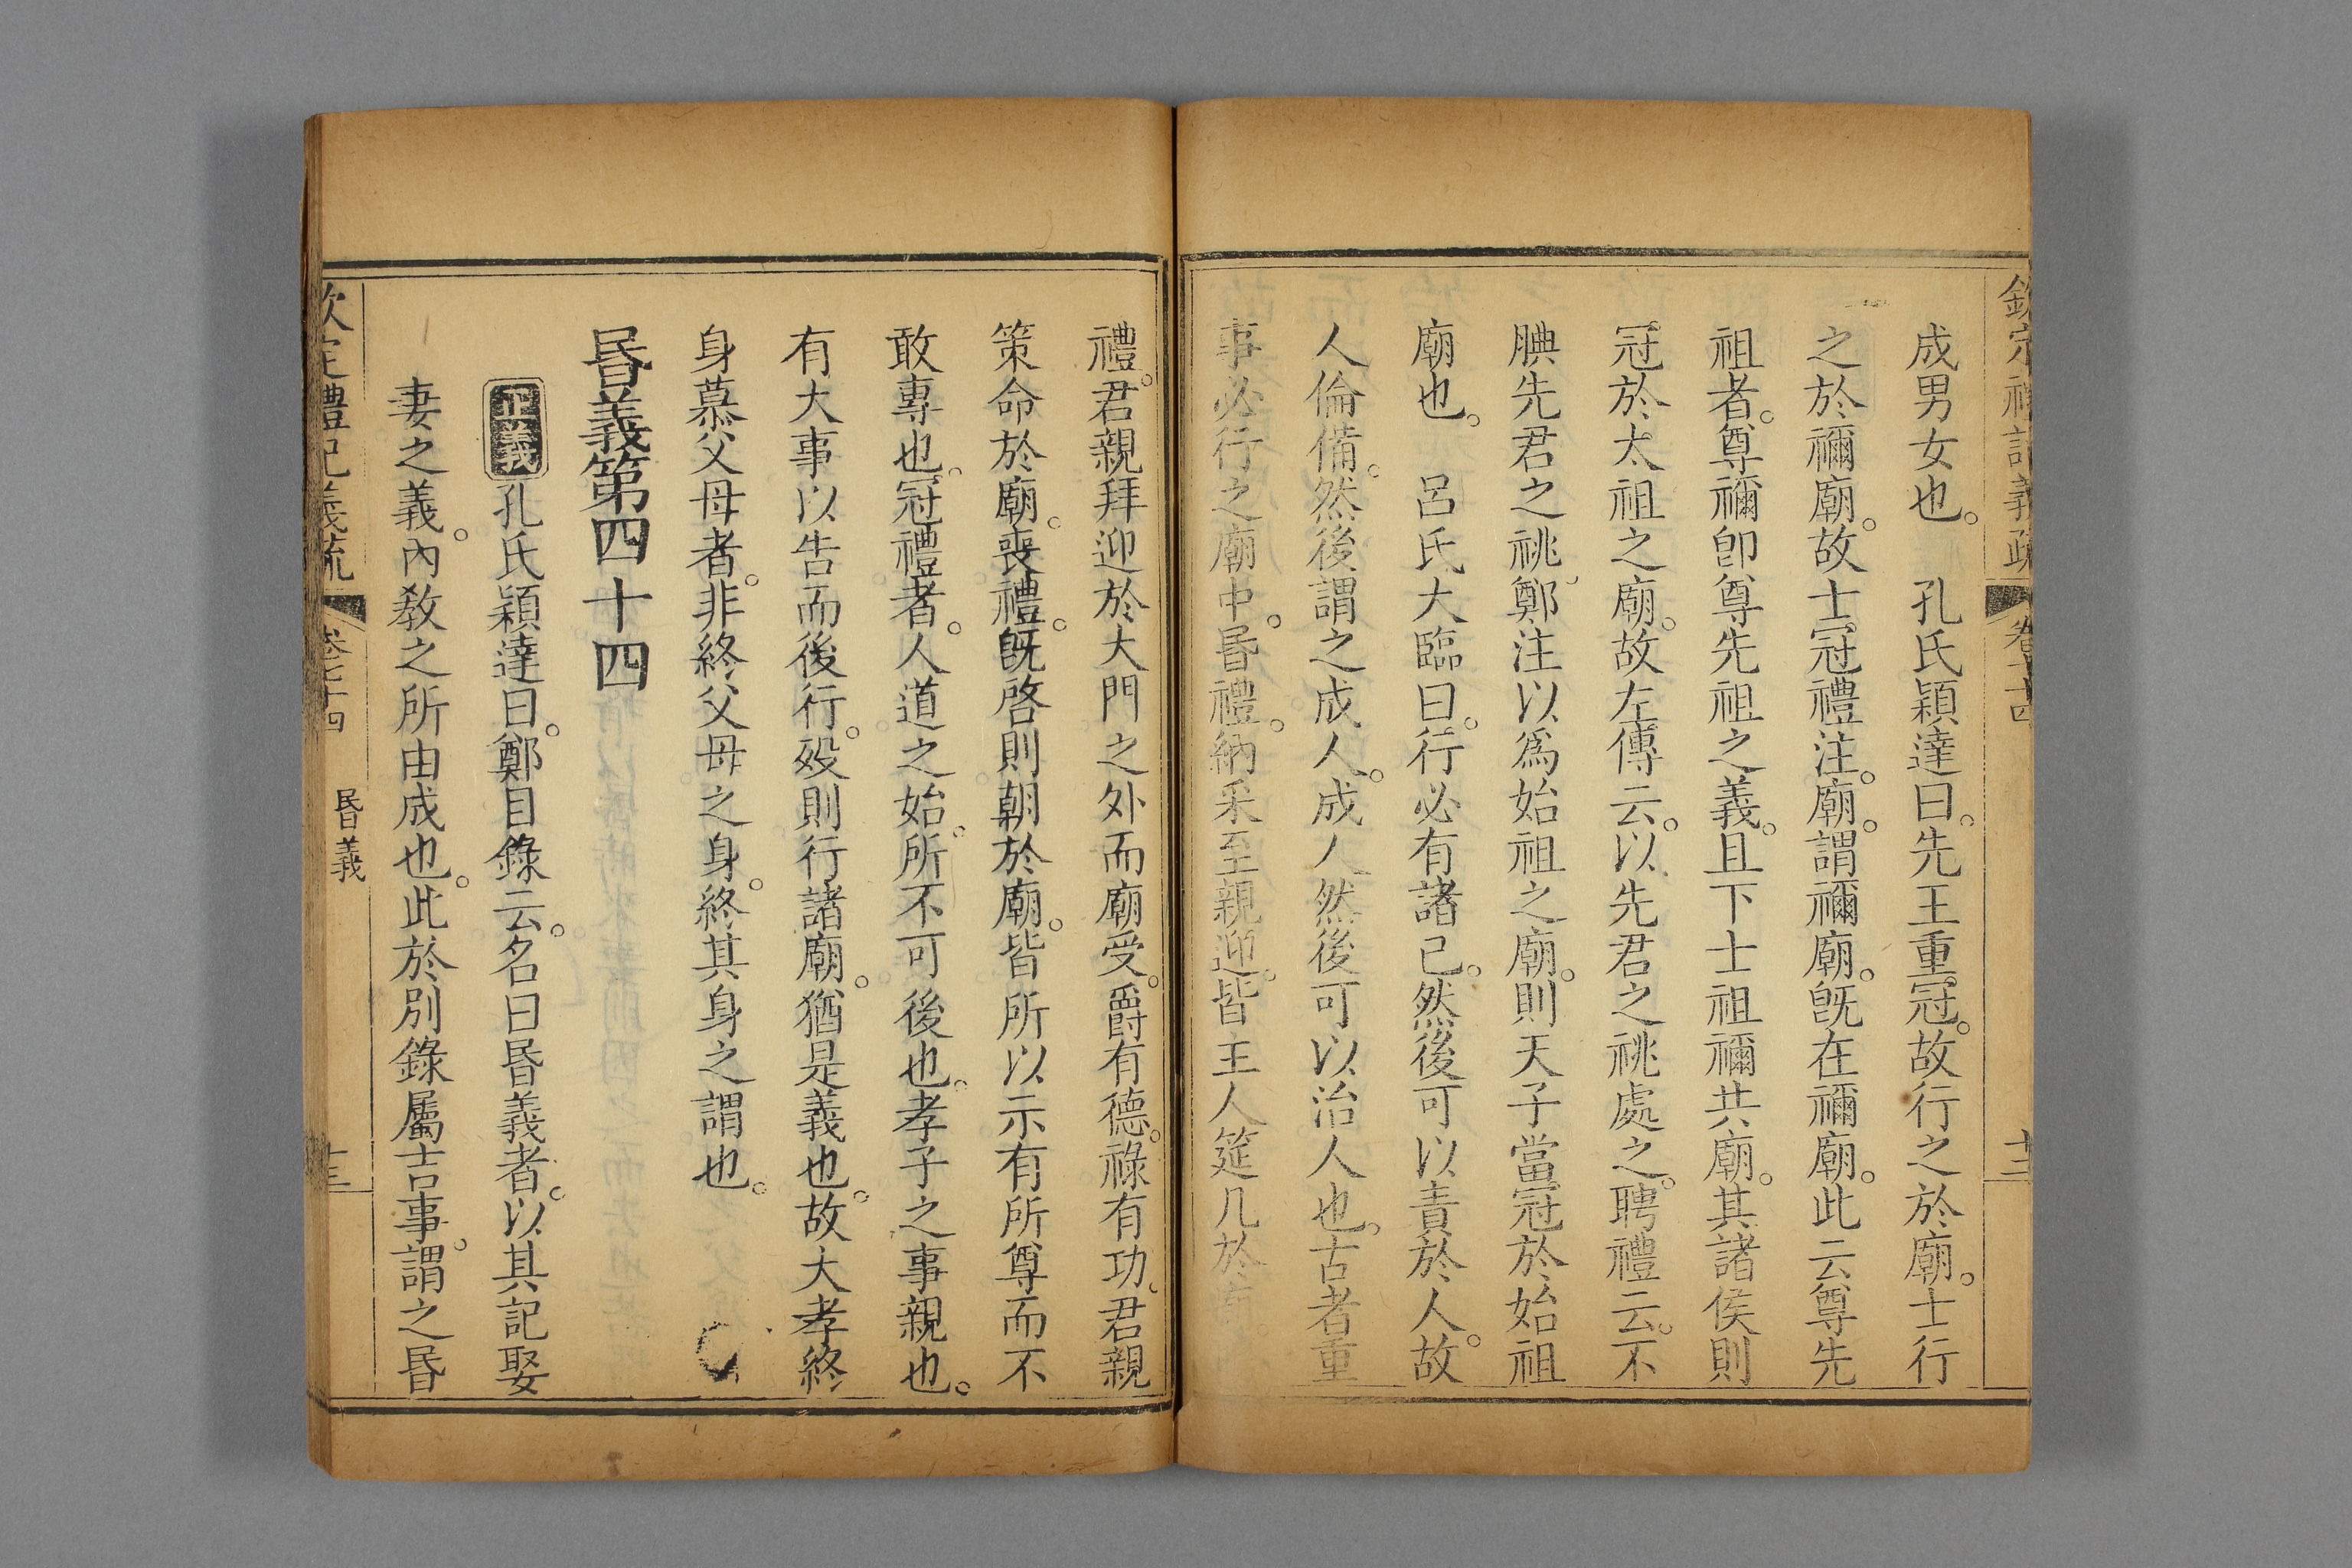 欽定禮記義疏 卷七十四 十二
成男女也。 孔氏穎達曰。先王重冠。故行之於廟。士行
之於禰廟。故士冠禮注。廟。謂禰廟。旣在禰廟。此云尊先
祖者。尊禰卽尊先祖之義。且下士祖禰共廟。其諸侯則
冠於太祖之廟。故左傳云。以先君之祧處之。聘禮云。不
腆先君之祧。鄭注以爲始祖之廟。則天子當冠於始祖
廟也。 呂氏大臨曰。行必有諸己。然後可以責於人。故
人倫備。然後謂之成人。成人然後可以治人也。古者重
事必行之廟中。昬禮。納采至親迎。皆主人筵几於廟。
禮。君親拜迎於大門之外而廟受。爵有德。祿有功。君親
策命於廟。喪禮。旣啓則朝於廟。皆所以示有所尊而不
敢專也。冠禮者。人道之始。所不可後也。孝子之事親也。
有大事以告而後行。歿則行諸廟。猶是義也。故大孝終
身慕父母者。非終父母之身。終其身之謂也。
昬義第四十四
正義孔氏穎達曰。鄭目錄云。名曰昬義者。以其記娶
妻之義。內敎之所由成也。此於別錄屬吉事。謂之昬
欽定禮記義疏 卷七十四 昬義 十三